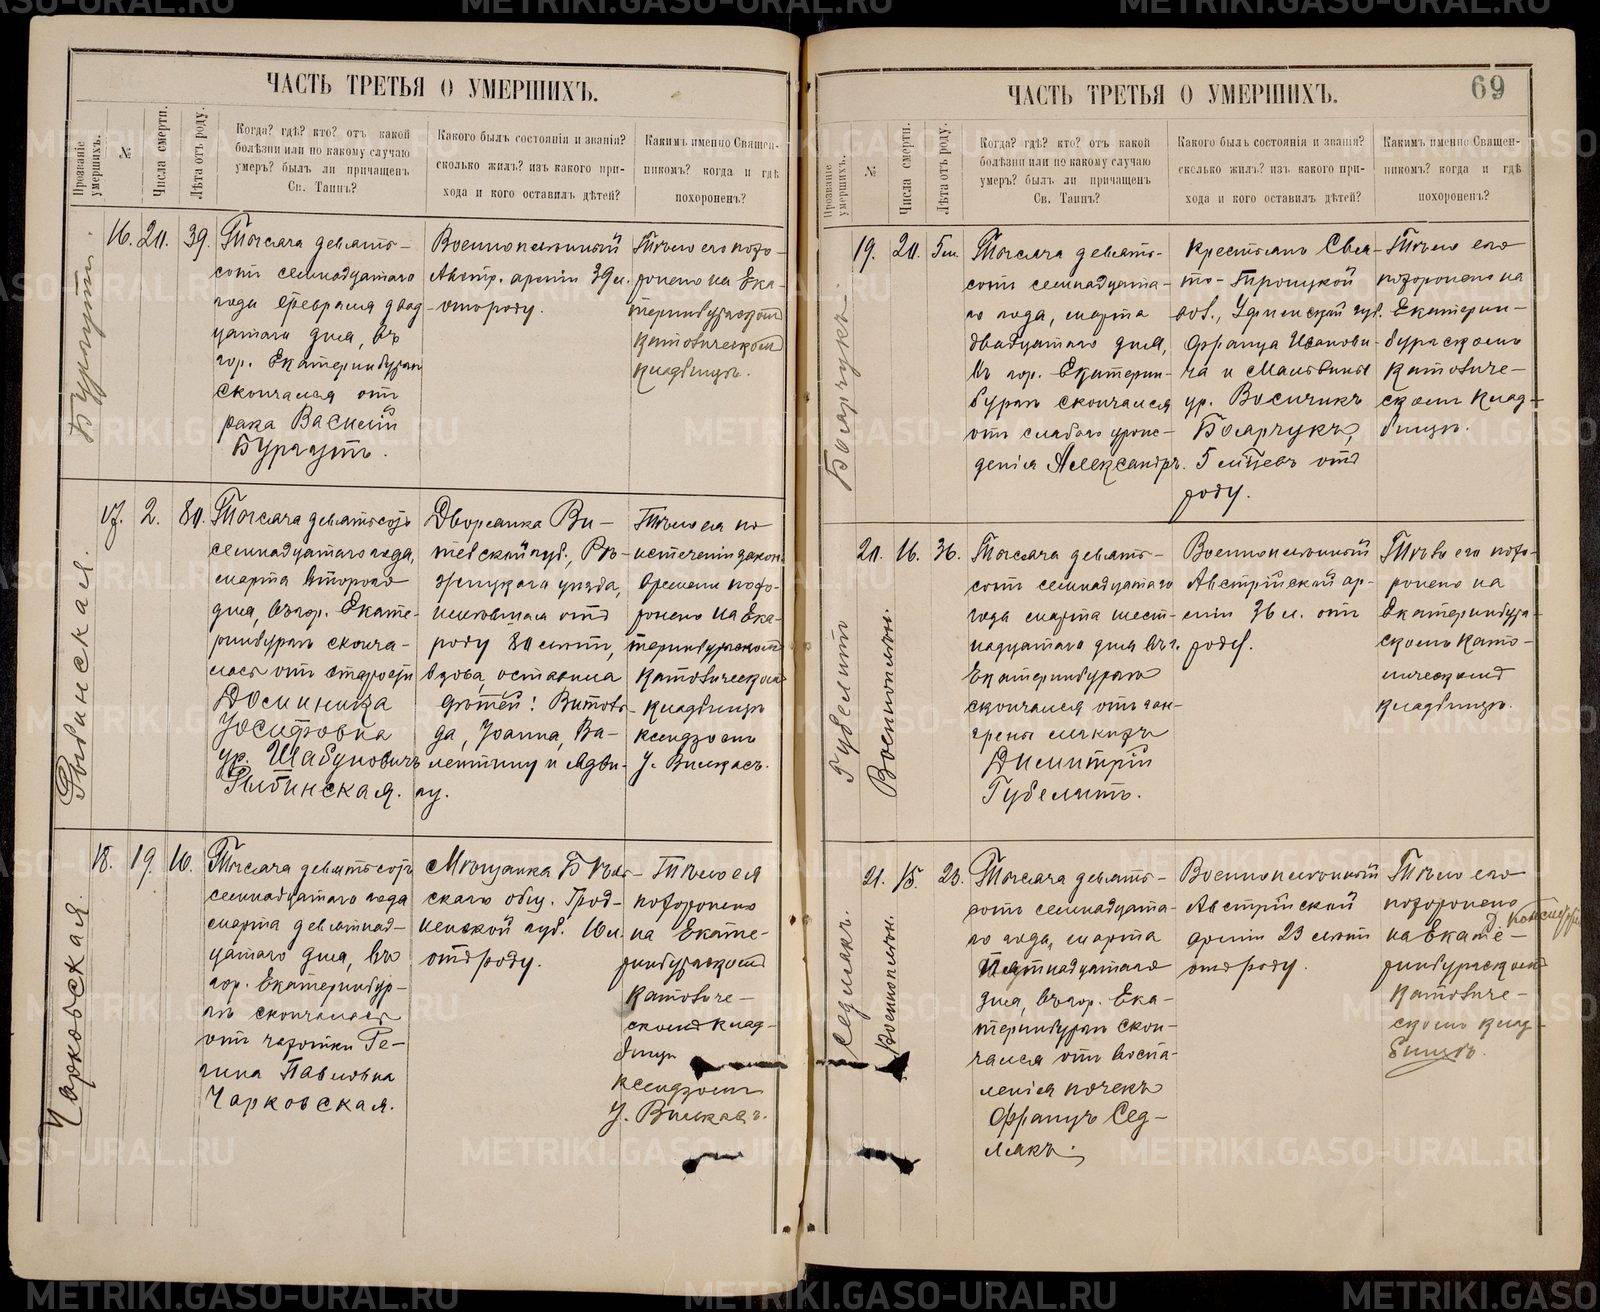 ЧАСТЬ ТРЕТЬЯ О УМЕРШИХЪ.
Прозваніе умершихъ.
№
Числа смерти.
Лѣта отъ роду.
Когда? гдѣ? кто? отъ какой
болѣзни или по какому случаю
умеръ? былъ ли причащенъ
Св. Таинъ?
Какого былъ состоянія и званія?
сколько жилъ? изъ какого при-
хода и кого оставилъ дѣтей?
Какимъ именно Священ-
никомъ? когда и гдѣ
похороненъ?
Бургутъ.
16. 20. 39.
Тысяча девять-
сотъ семнадцатаго
года февраля двад
цатаго дня, въ
гор. Екатеринбургѣ
скончался отъ
рака Василій
Бургутъ.
Военноплѣнный
Австр. арміи 39 л.
отъ роду.
Тѣло его похо-
ронено на Ека-
теринбургскомъ
католическомъ
кладбищѣ.
Рыбинская.
17. 2. 80.
Тысяча девятьсотъ
семнадцатаго года,
марта второго
дня, въ гор. Екате-
ринбургѣ сконча-
лась отъ старости
Доминика
Іосифовна
ур. Шабуновичъ
Рыбинская.
Дворянка Ви-
тебской губ., Рѣ-
жицкаго уѣзда,
имѣвшая отъ
роду 80 лѣтъ,
вдова, оставила
дѣтей: Витоль-
да, Іоанна, Ва-
лентину и Ядви-
гу.
Тѣло ея по
истеченіи закон.
времени похо-
ронено на Ека-
теринбургскомъ
католическомъ
кладбищѣ
ксендзомъ
І. Вилкасъ.
Чарковская.
18. 19. 16.
Тысяча девятьсотъ
семнадцатаго года
марта девятнад-
цатаго дня, въ
гор. Екатеринбур-
гѣ скончалась
отъ чахотки Ре-
гина Павловна
Чарковская.
Мѣщанка Бѣль-
скаго общ. Грод-
ненской губ. 16 л.
отъ роду.
Тѣло ея
похоронено
на Екате-
ринбургскомъ
католиче-
скомъ клад-
бищѣ
ксендзомъ
І. Вилкасъ.
69
ЧАСТЬ ТРЕТЬЯ О УМЕРШИХЪ.
Прозваніе умершихъ.
№
Числа смерти.
Лѣта отъ роду.
Когда? гдѣ? кто? отъ какой
болѣзни или по какому случаю
умеръ? былъ ли причащенъ
Св. Таинъ?
Какого былъ состоянія и званія?
сколько жилъ? изъ какого при-
хода и кого оставилъ дѣтей?
Какимъ именно Священ-
никомъ? когда и гдѣ
похороненъ?
Боларчукъ.
19. 20. 5 м.
Тысяча девять-
сотъ семнадцата-
го года, марта
двадцатаго дня,
въ гор. Екатерин-
бургѣ скончался
отъ слабаго урож-
денія Александръ.
Крестьянъ Свя-
то-Троицкой
вол., Уфимской губ.
Франца Иванови-
ча и Мальвины
ур. Восичикъ
Боларчукъ,
5 мѣсцевъ отъ
роду.
Тѣло его
похоронено на
Екатерин-
бургскомъ
католиче-
скомъ клад-
бищѣ.
Губелитъ
Военноплѣн.
20. 16. 36.
Тысяча девять-
сотъ семнадцатаго
года марта шест-
надцатаго дня въ г.
Екатеринбургѣ
скончался отъ ган-
грены легкихъ
Димитрій
Губелитъ.
Военноплѣнный
Австрійской ар-
міи 36 л. отъ
роду.
Тѣло его похо-
ронено на
Екатеринбург-
скомъ като-
лическомъ
кладбищѣ.
Седлакъ.
Военноплѣн.
21. 15. 23.
Тысяча девять-
сотъ семнадцата-
го года, марта
пятнадцатаго
дня, въ гор. Ека-
теринбургѣ скон-
чался отъ воспа-
ленія почекъ
Францъ Сед-
лакъ.
Военноплѣнный
Австрійской
арміи 23 лѣтъ
отъ роду.
Тѣло его
похоронено
на Екате-
ринбургскомъ
католиче-
скомъ клад-
бищѣ.
METRIKI.GASO-URAL.RU